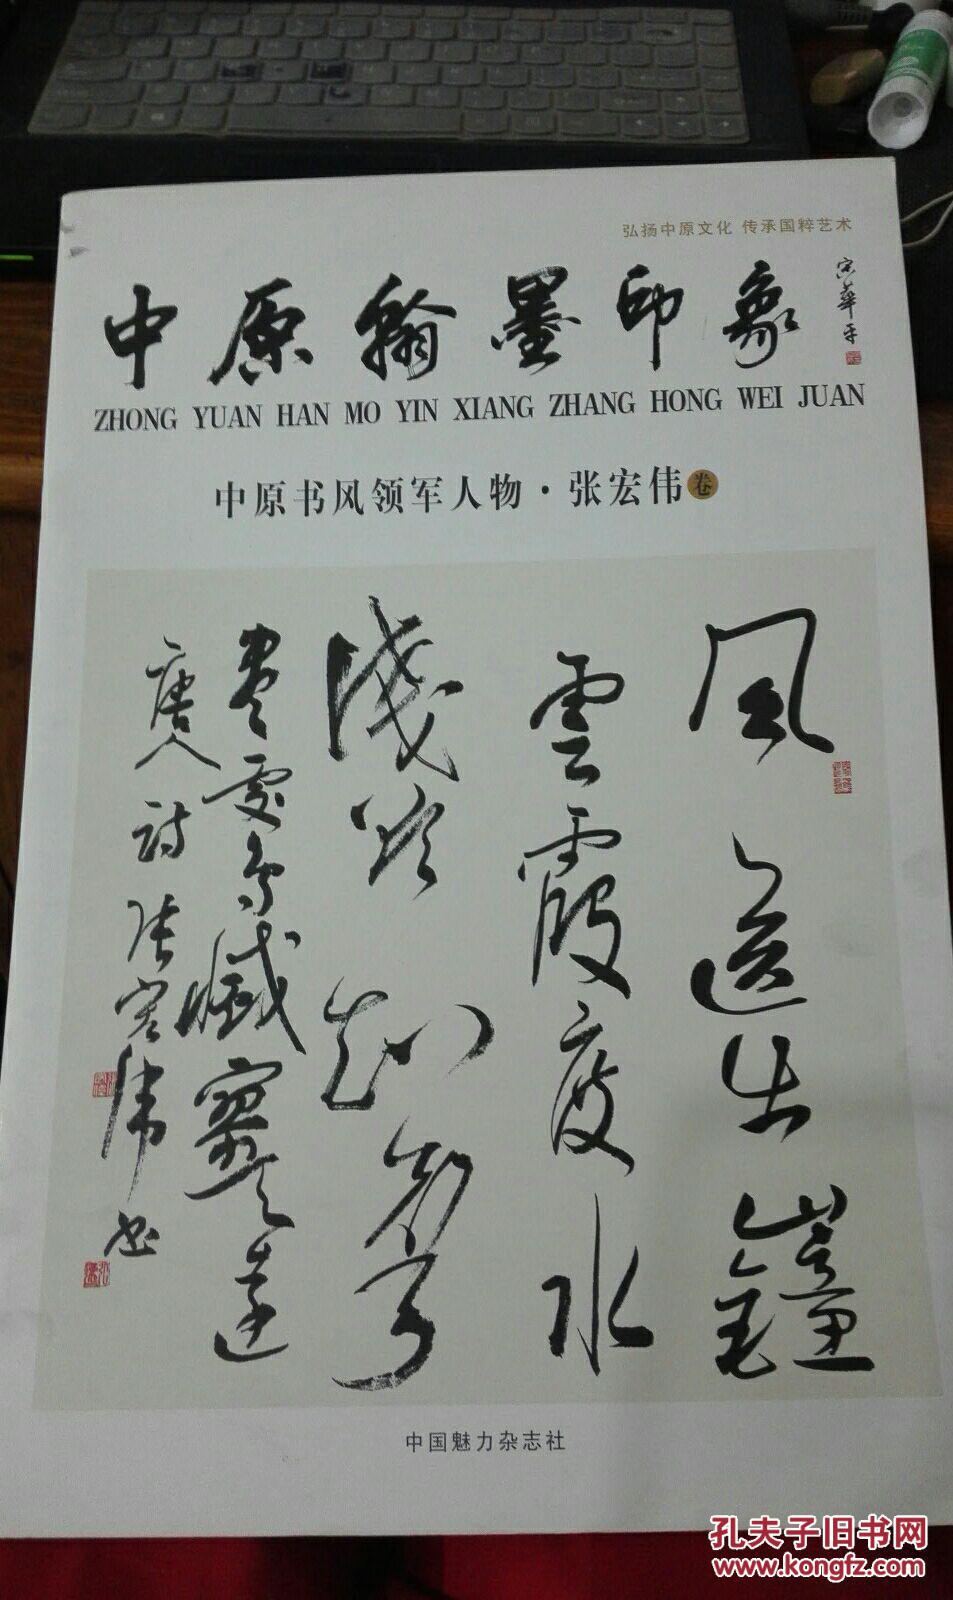 弘扬中原文化 传承国粹艺术
中原翰墨印象
宋華平
ZHONG YUAN HAN MO YIN XIANG ZHANG HONG WEI JUAN
中原书风领军人物·张宏伟卷
風送出山鐘
雲霞度水
淺欲知聲
盡處鳥滅寥天遠
唐人詩張宏偉書
中国魅力杂志社
孔夫子旧书网
www.kongfz.com